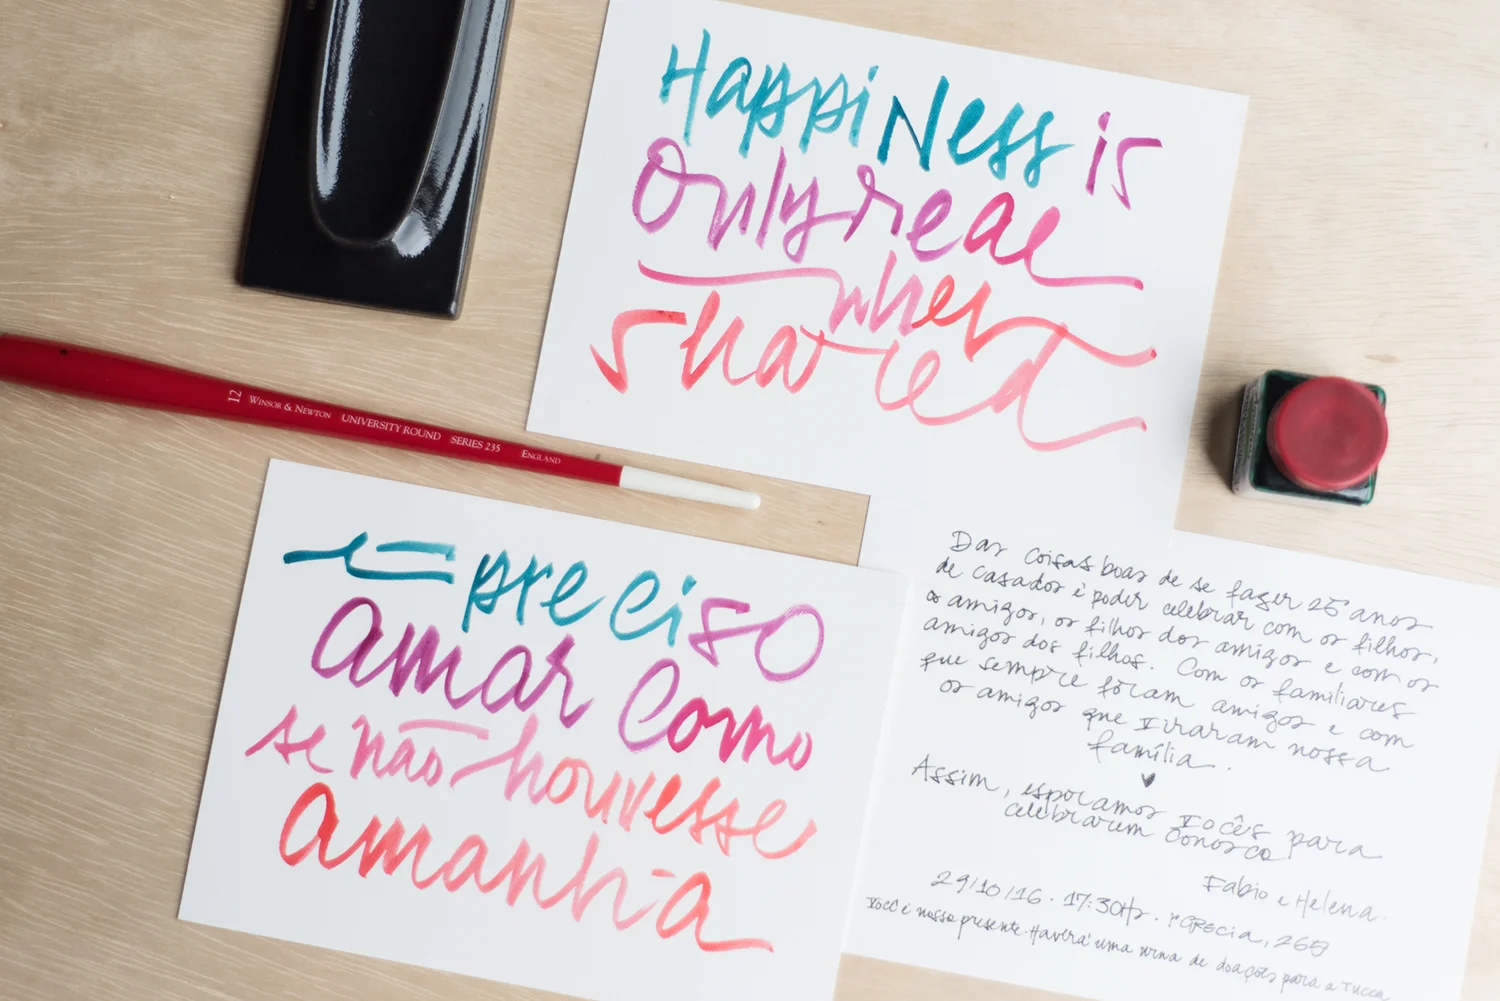 Happiness is
Only real
when
shared
12 WINSOR & NEWTON UNIVERSITY ROUND SERIES 235 ENGLAND
é preciso
amar como
se não houvesse
amanhã
Das coisas boas de se fazer 25 anos
de casados é poder celebrar com os filhos,
os amigos, os filhos dos amigos e com os
amigos dos filhos. Com os familiares
que sempre foram amigos e com
os amigos que viraram nossa
família.
Assim, esperamos vocês para
celebrarem conosco
Fabio e Helena.
29/10/16 · 17:30Hr · r. Grecia, 265
você é nosso presente. Haverá uma urna de doações para a Tucca